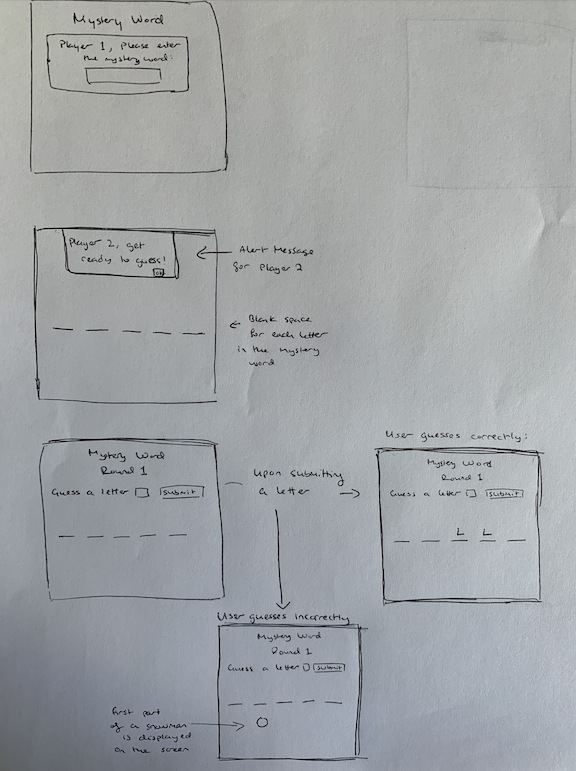 Mystery Word
Player 1, Please enter
the mystery word:
Player 2, get
ready to guess!
OK
Alert Message
for Player 2
Blank space
for each letter
in the mystery
word
Mystery Word
Round 1
Guess a letter
Submit
Upon submitting
a letter
User guesses correctly:
Mystery Word
Round 1
Guess a letter
Submit
L L
User guesses incorrectly
Mystery Word
Round 1
Guess a letter
Submit
first part
of a snowman
is displayed
on the screen